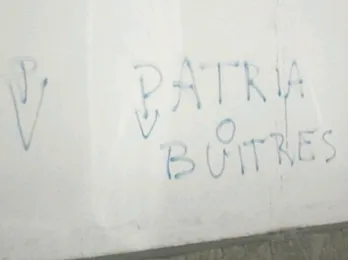 P
PATRIA
O
BUITRES